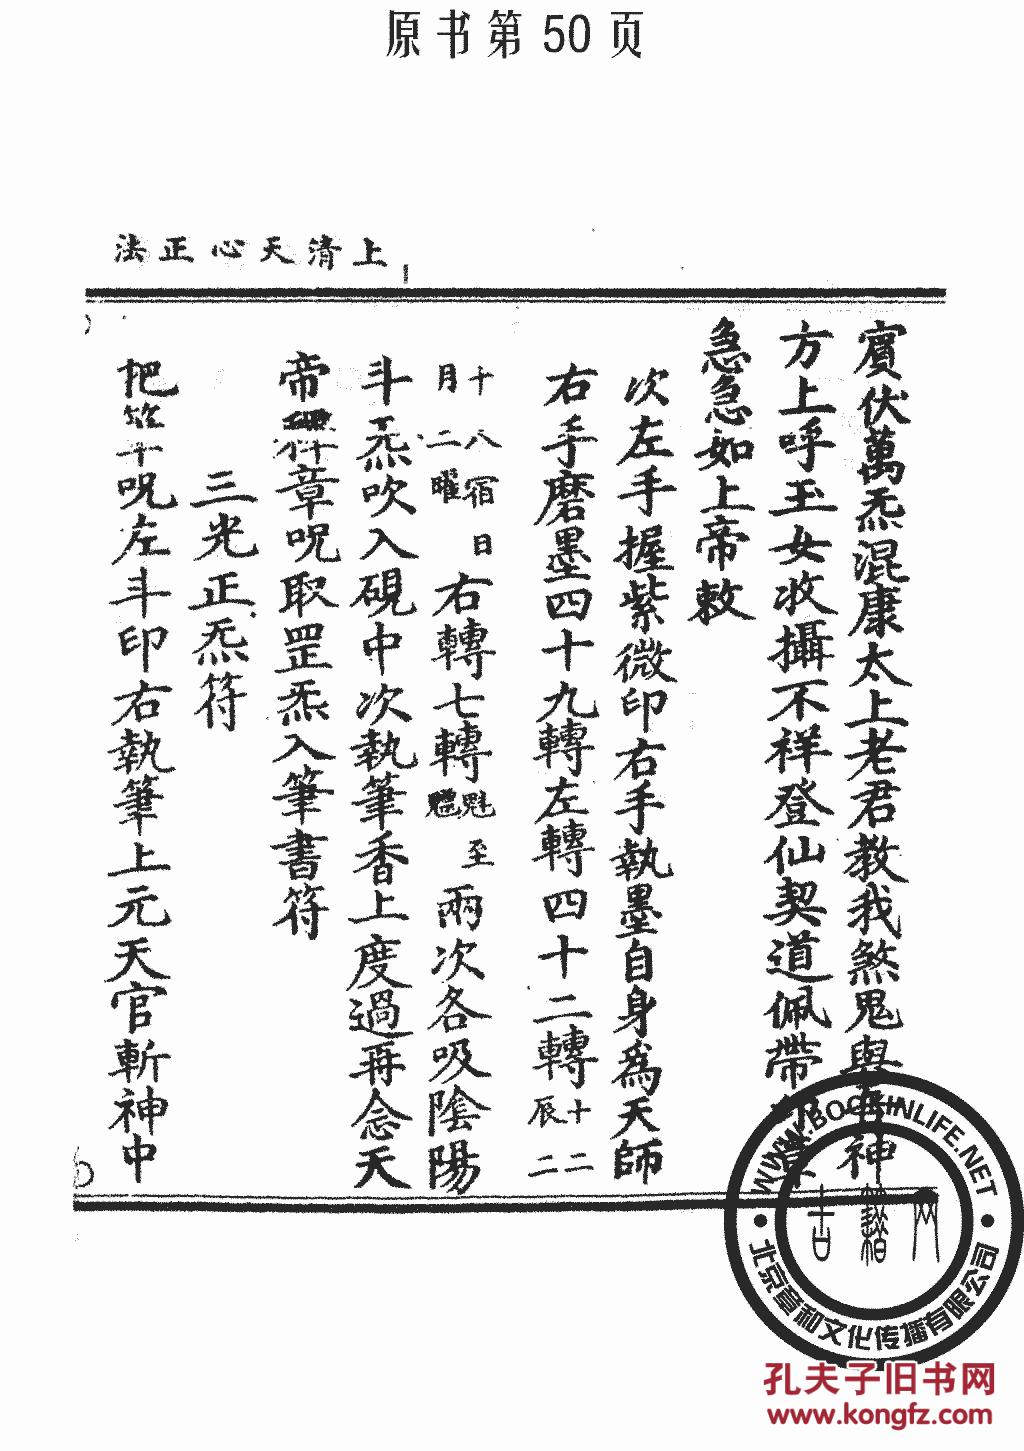 原书第 50 页
上清天心正法
賓伏萬炁混康太上老君教我煞鬼與神
方上呼玉女收攝不祥登仙契道佩帶
急急如上帝敕
次左手握紫微印右手執墨自身為天師
右手磨墨四十九轉左轉四十二轉十二辰二
十八宿日月二曜右轉七轉魁至魒兩次各吸陰陽
斗炁吹入硯中次執筆香上度過再念天
帝釋章呪取罡炁入筆書符
三光正炁符
把筆呪左斗印右執筆上元天官斬神中
WWW.BOOKINLIFE.NET
古籍网
北京章和文化传播有限公司
孔夫子旧书网
www.kongfz.com